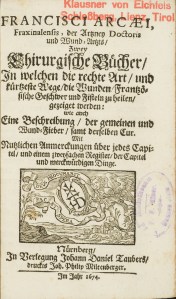 Klausner von Eichlois
Schloßberg Lienz Tirol
FRANCISCI ARCÆI,
Fraxinalensis, der Artzney Doctoris
und Wund-Artzts,
Zwey
Chirurgische Bücher/
In welchen die rechte Art/ und
kürtzeste Wege/ die Wunden/ Frantzö-
sische Geschwer und Fisteln zu heilen/
gezeiget werden:
wie auch
Eine Beschreibung/ der gemeinen und
Wund-Fieber/ samt derselben Cur.
Mit
Nutzlichen Anmerckungen über jedes Capi-
tul/ und einem zweyfachen Register/ der Capitel
und merckwürdigen Dinge.
Nürnberg/
In Verlegung Johann Daniel Taubers/
druckts Joh. Philip Miltenberger.
Im Jahr 1674.